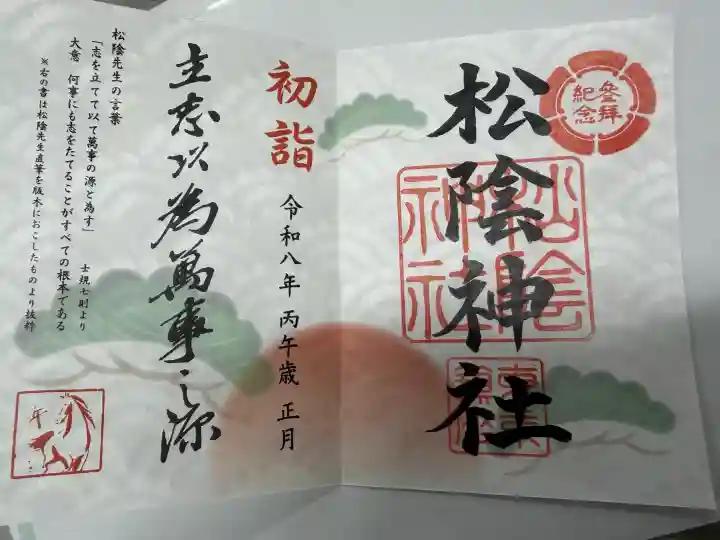 參拝
紀念
松陰神社
松陰
神社
初詣
令和八年 丙午歳 正月
立志以為萬事之源
松陰先生の言葉
「志を立てて以て萬事の源と為す」
士規七則より
大意 何事にも志をたてることがすべての根本である
※右の書は松陰先生直筆を版木におこしたものより抜粋
午